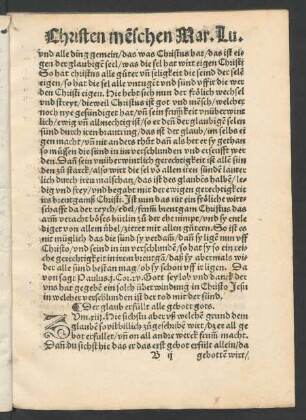 Christen mēschen Mar. Lu.
vnd alle ding gemein/das was Christus hat/das ist ei
gen der glaubigē seel/was die sel hat wirt eigen Christi
So hat christus alle güter vn̄ seligkeit die seind der selē
eigen/so hat die sel alle vntuget vnd sünd vff ir die wer
den Christi eigen. Hie hebt sich nun der frölich wechsel
vnd streyt/dieweil Christus ist got vnd mēsch/welcher
noch nye gesündiget hat/vn̄ sein frumkeit vnüberwint
lich/ewig vn̄ allmechtig ist/so er den der glaubigē selen
sünd durch iren brautring/das ist der glaub/im selbs ei
gen macht/vn̄ nit anders thůt dan̄ als het er sy gethan
so müssen die sünd in im verschlunden vnd erseufft wer
den. Dan̄ sein vnüberwintlich gerechtigkeit ist allē sün
den zů starck/also wirt die sel võ allen iren sündē lauter
durch iren malschatz/das ist des glaubēs halbē/le
dig vnd frey/vnd begabt mit der ewigen gerechtigkeit
irs breutgams Christi. Ist nun das nit ein frölich wirt
schafft da der reych/edel/frum breutgam Christus das
arm veracht bösses hürlin zů der ehe nimpt/vnd sy entle
diget von allem übel/zieret mit allen gütern? So ist es
nit müglich das die sünd sy verdam̄/dan̄ sy ligen nun vff
Christo/vnd seind in im verschlundē/so hat sy so ein rey
che gerechtigkeit in irem breutgā/das sy abermals wi
der alle sünd bestan mag/ob sy schon vff ir ligen. Da
von sagt Paulus.j.Cor.xv. Got sey lob vnd danck der
vns hat gegebē ein solch überwindung in Christo Jesu
in welcher verschlunden ist der tod mit der sünd.
¶ Der glaub erfült alle gebott gots.
ZVm.xiij. Hie sichstu aber vß welchē grund dem
glaubē so vil billich zůgeschribē wirt/dz er all ge
bot erfüllet/vn̄ on all andere werck frum̄ macht.
Dan̄ du sichst hie das er das erst gebot erfült allein/da
B ij gebottē wirt/